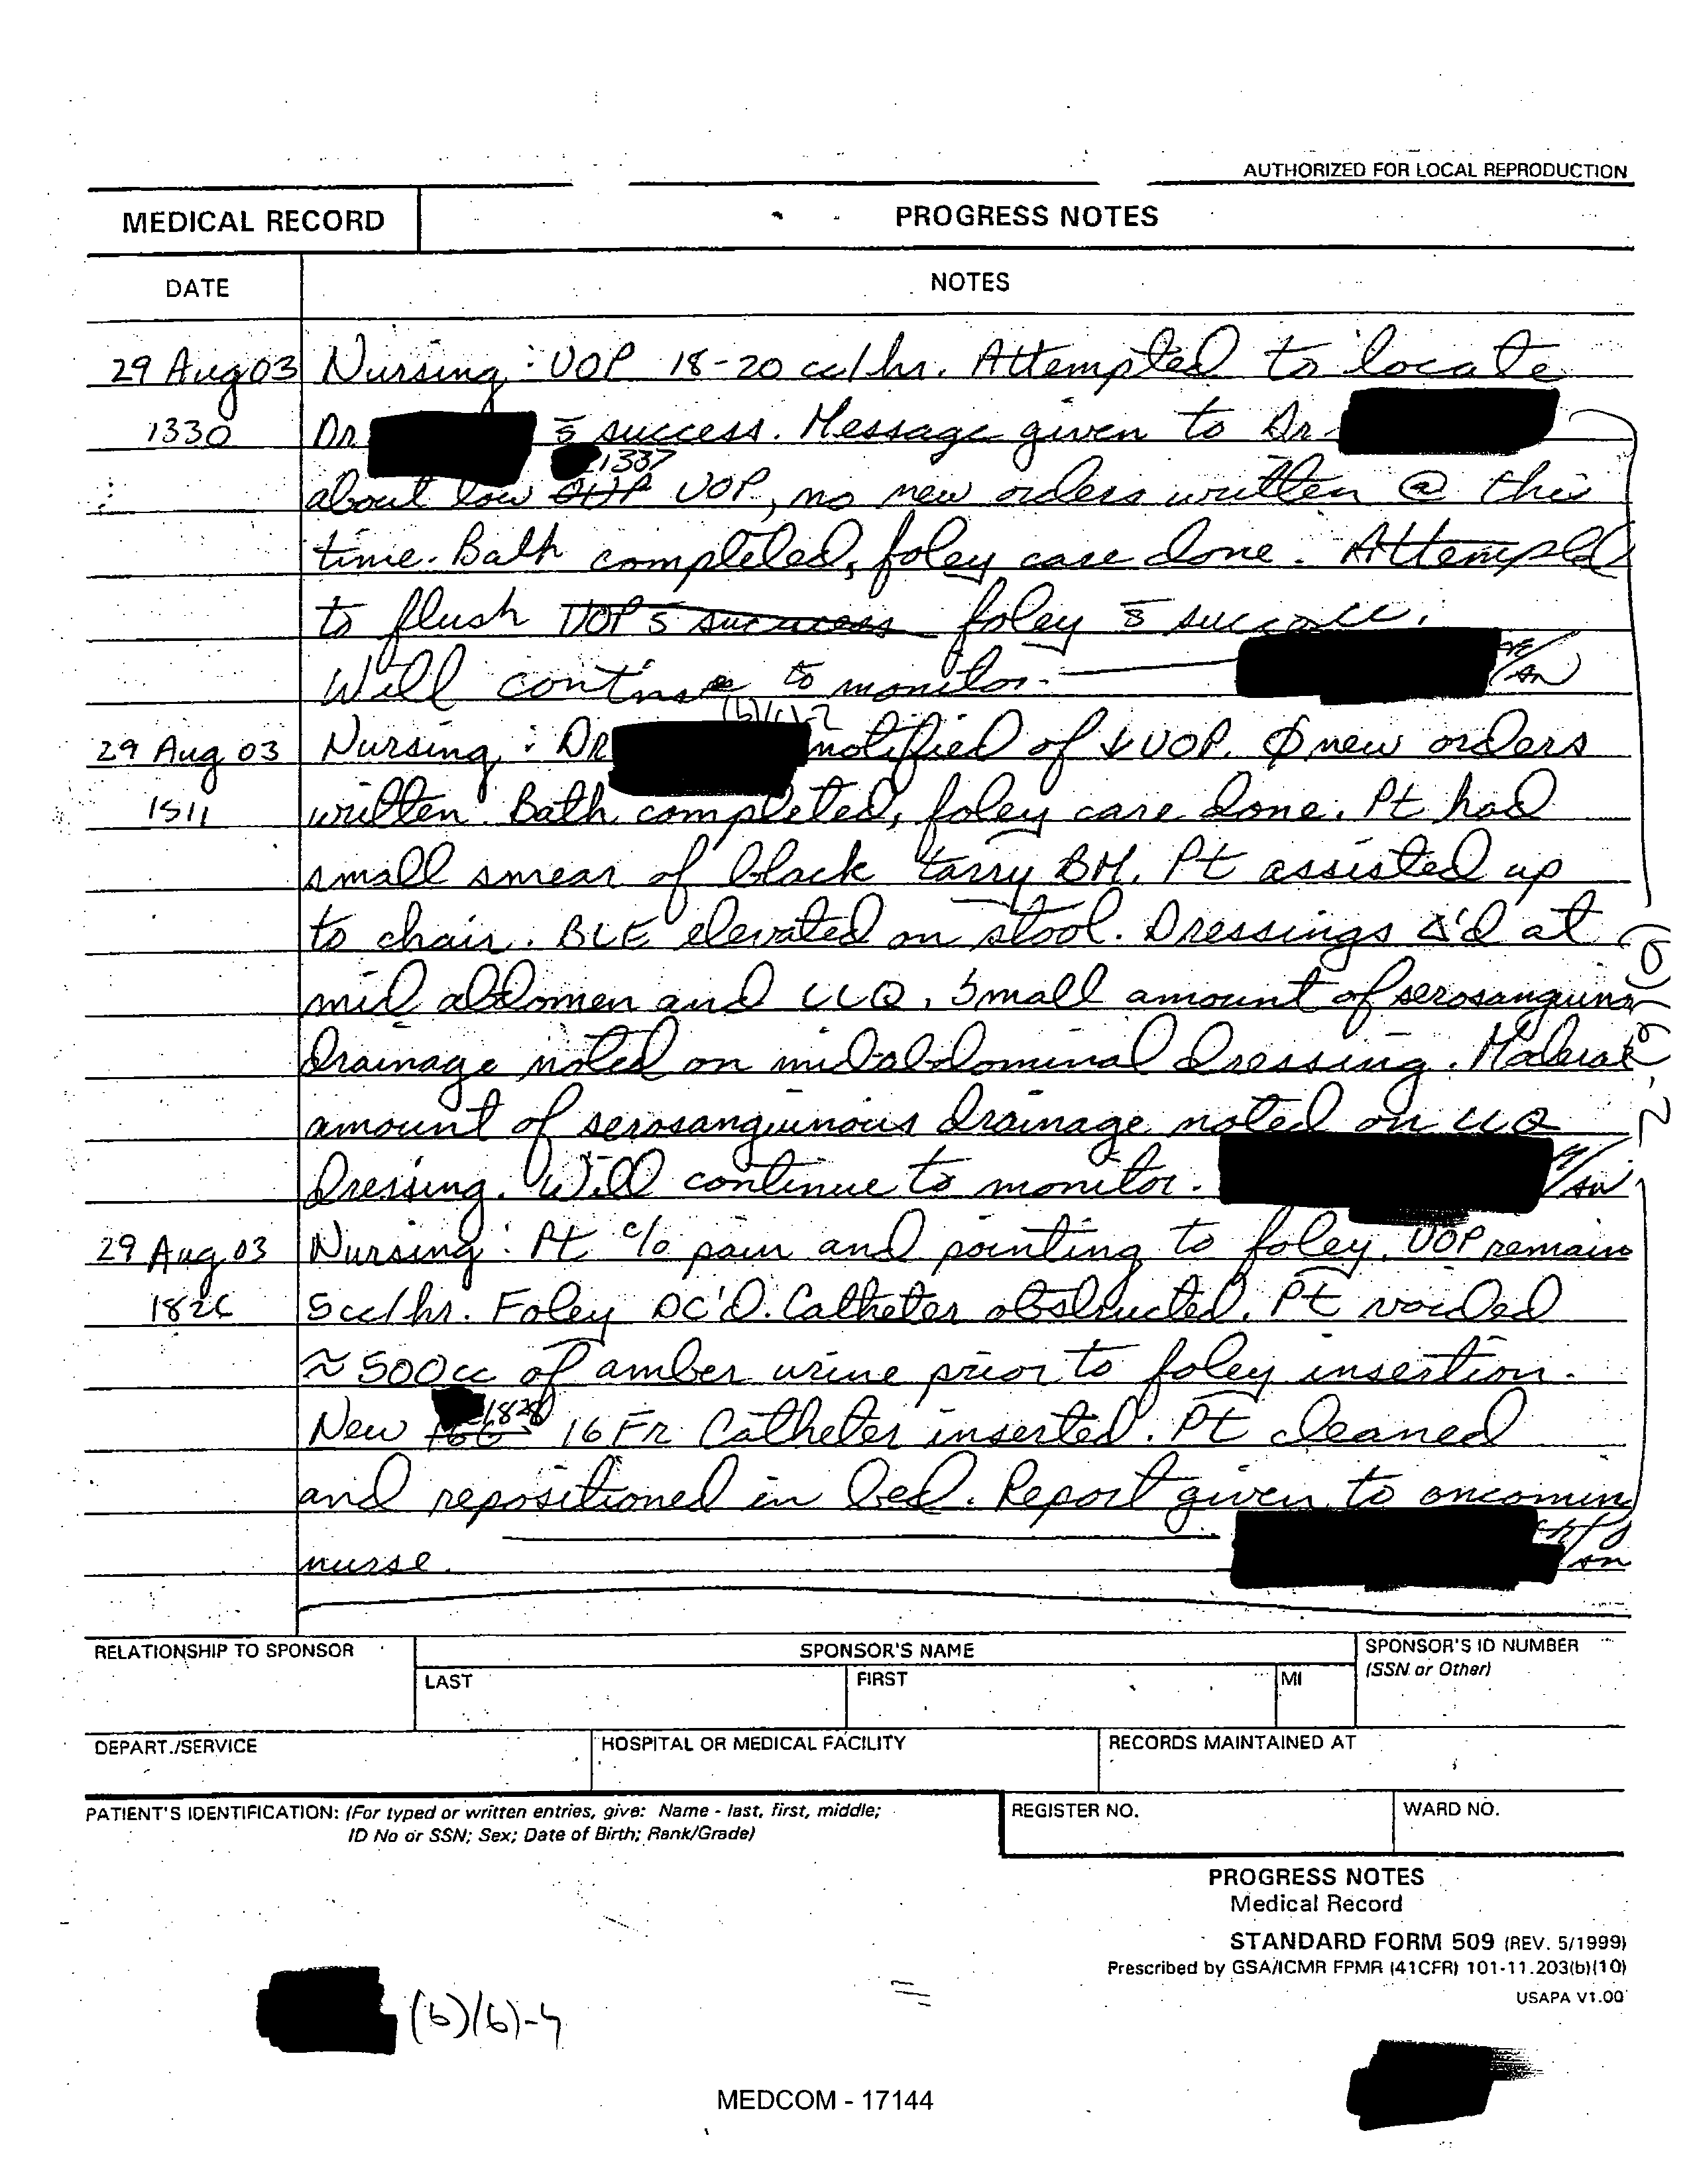 AUTHORIZED FOR LOCAL REPRODUCTION
MEDICAL RECORD PROGRESS NOTES
DATE NOTES
29 Aug 03 Nursing: UOP 18-20 cc/hr. Attempted to locate
1330 Dr s̄ success. Message given to Dr.
1337
about low UOP, no new orders written @ this
time. Bath completed, foley care done. Attempted
to flush UOP s̄ success foley s̄ success.
Will continue to monitor. /AN
(b)(6)-2
29 Aug 03 Nursing: DR notified of ↓UOP. Ø new orders
1511 written. Bath completed, foley care done. Pt had
small smear of black tarry BM. Pt assisted up
to chair. BLE elevated on stool. Dressings Δ'd at
mid abdomen and LLQ. Small amount of serosanguino
drainage noted on midabdominal dressing. Moderate
amount of serosanguinous drainage noted on LLQ
dressing. Will continue to monitor. /AN
(b)(6)-2
29 Aug 03 Nursing: Pt c/o pain and pointing to foley. UOP remain
182 5cc/hr. Foley DC'd. Catheter obstructed. Pt voided
≈ 500cc of amber urine prior to foley insertion.
1828
New 16 Fr Catheter inserted. Pt cleaned
and repositioned in bed. Report given to oncomin
nurse. /AN
RELATIONSHIP TO SPONSOR SPONSOR'S NAME SPONSOR'S ID NUMBER
LAST FIRST MI (SSN or Other)
DEPART./SERVICE HOSPITAL OR MEDICAL FACILITY RECORDS MAINTAINED AT
PATIENT'S IDENTIFICATION: (For typed or written entries, give: Name - last, first, middle; REGISTER NO. WARD NO.
ID No or SSN; Sex; Date of Birth; Rank/Grade)
PROGRESS NOTES
Medical Record
STANDARD FORM 509 (REV. 5/1999)
Prescribed by GSA/ICMR FPMR (41CFR) 101-11.203(b)(10)
USAPA V1.00
(b)(6)-4
MEDCOM - 17144